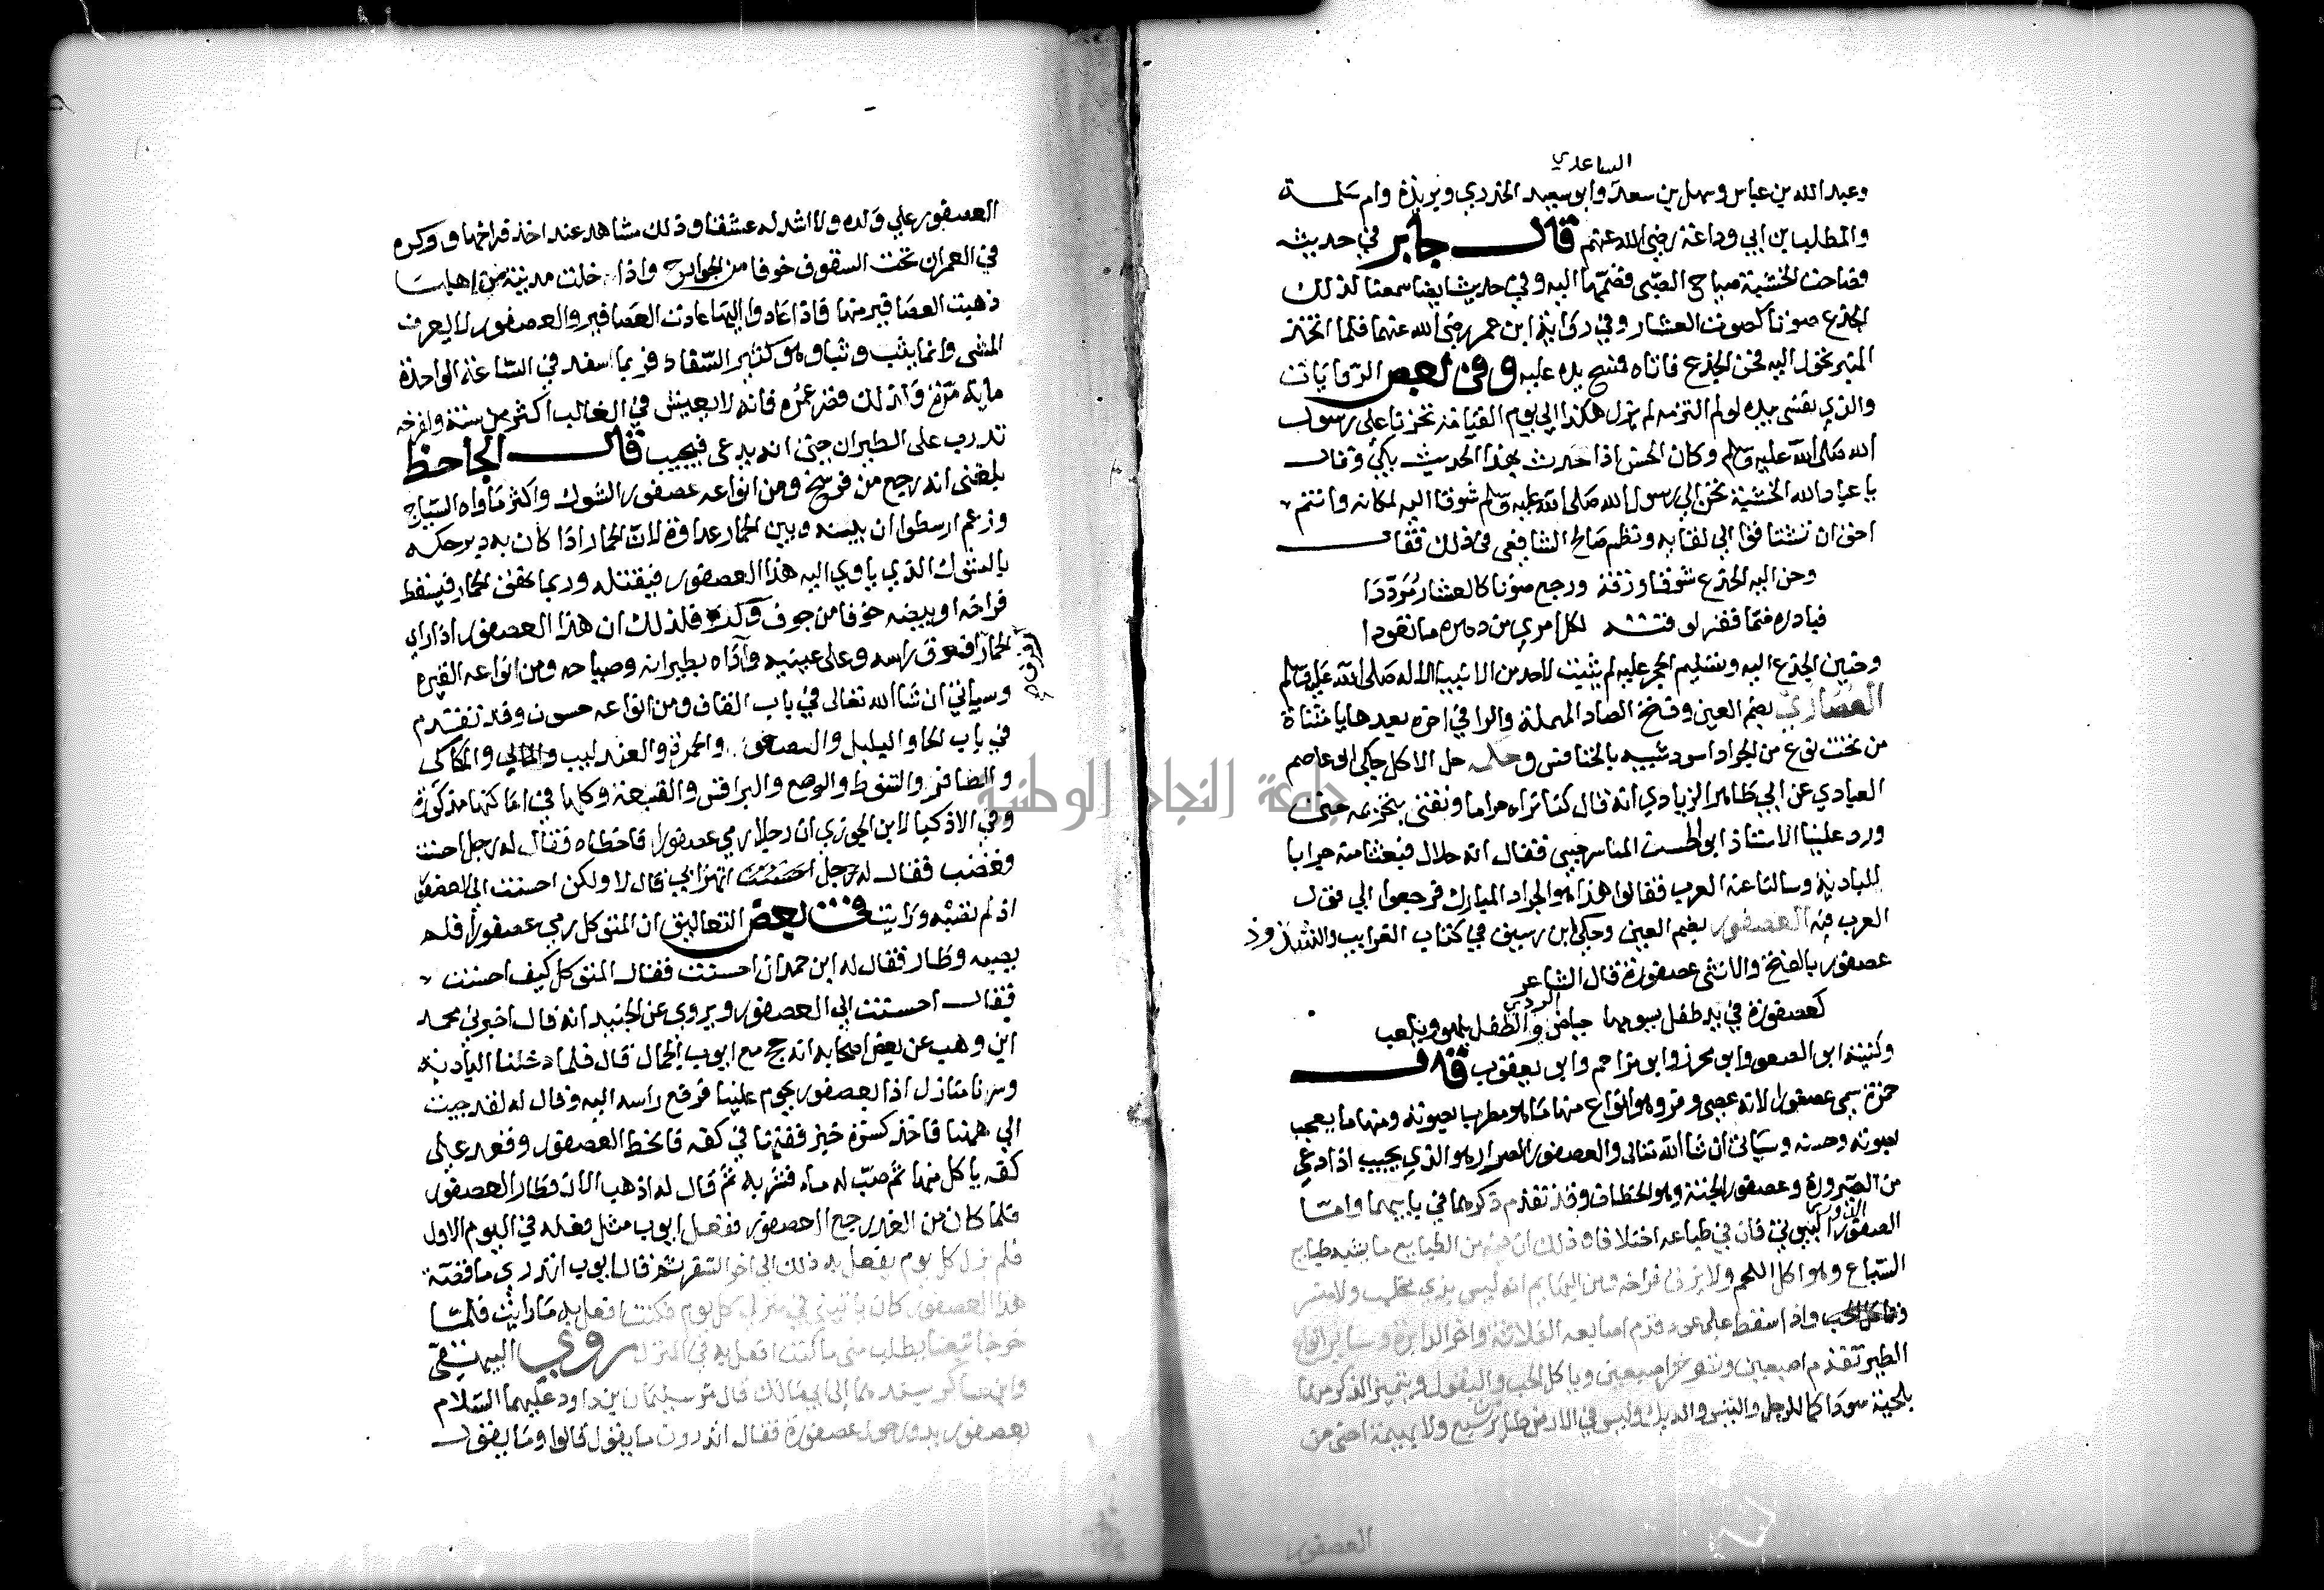 الساعدي
وعبد الله بن عباس وسهل بن سعد وابو سعيد الخدري وبريدة وام سلمة
والمطلب بن ابي وداعة رضي الله عنهم قال جابر في حديثه
فصاحت الخشبة صياح الصبي فضمها اليه وفي حديث ايضا سمعنا لذلك
الجذع صوتا كصوت العشار وفي رواية ابن عمر رضي الله عنهما فلما اتخذ
المنبر تحول اليه فحن الجذع فاتاه فمسح يده عليه وفي بعض الروايات
والذي نفسي بيده لو لم التزمه لم يزل هكذا الي يوم القيامة تحزنا علي رسول
الله صلى الله عليه وسلم وكان الحسن اذا حدث بهذا الحديث بكي وقال
يا عباد الله الخشبة تحن الي رسول الله صلى الله عليه وسلم شوقا اليه لمكانه وانتم
احق ان تشتاقوا الي لقايه ونظم صالح الشافعي في ذلك فقال
وحن اليه الجذع شوقا ورقة ورجع صوتا كالعشار مرددا
فبادره ضما فقر لوقته لكل امرء من دهره ما تعودا
وحنين الجذع اليه وتسليم الحجر عليه لم يثبت لاحد من الانبيا الا له صلى الله عليه وسلم
العصاري بضم العين وفتح الصاد المهملة والرا في اخره بعدها يا مثناة
من تحت نوع من الجراد اسود شبيه بالخنافس وحكمه حل الاكل حكي ابو عاصم
العبادي عن ابي طاهر الزيادي انه قال كنا نراه حراما ونفتي بتحريمه حتى
ورد علينا الاستاذ ابو الحسن الماسرجسي فقال انه حلال فبعثنا منه جرابا
للبادية وسالنا عنه العرب فقالوا هذا هو الجراد المبارك فرجعوا الي قول
العرب فيه العصفور بضم العين وحكي ابن رسيق في كتاب الغرايب والشذوذ
عصفور بالفتح والانثى عصفورة قال الشاعر
كعصفورة في يد طفل يسومها حياض الردي والطفل يلهو ويلعب
وكنيته ابو الصعو وابو محرز وابو مزاحم وابو يعقوب قال
حمزة سمي عصفورا لانه عصى وفر وهو انواع منها ما هو مطرب بصوته ومنها ما يعجب
بصوته وحسنه وسياتي ان شا الله تعالى والعصفور الصرار هو الذي يجيب اذا دعي
من الصرورة وعصفور الجنة وهو الخطاف وقد تقدم ذكرهما في بابيهما واما
العصفور البيوتي فان في طباعه اختلافا وذلك ان فيه من الطبايع ما يشبه طبايع
السباع وهو اكل اللحم ولا يزق فراخه ومن البهايم انه ليس بذي مخلب ولا منسر
وياكل الحب واذا سقط علي عود قدم اصابعه الثلاثة واخر الدابرة وساير انواع
الطير تقدم اصبعين وتوخر اصبعين وياكل الحب والبقول ويتميز الذكر منها
بلحية سودا كما للرجل والتيس والديك وليس في الارض طاير ولا سبع ولا بهيمة احنى من
العصفور
العصفور علي ولده ولا اشد له عشقا وذلك مشاهد عند اخذ فراخها ووكره
في العمران تحت السقوف خوفا من الجوارح واذا خلت مدينة من اهلها
ذهبت العصافير منها فاذا عادوا اليها عادت العصافير والعصفور لا يعرف
المشي وانما يثب وثبا وهو كثير السفاد فربما سفد في الساعة الواحدة
ماية مرة ولذلك قصر عمره فانه لا يعيش في الغالب اكثر من سنة ولفرخه
تدرب على الطيران حتى انه يدعى فيجيب قال الجاحظ
بلغني انه رجع من فرسخ ومن انواعه عصفور الشوك واكثر ماواه السباج
وزعم ارسطوا ان بينه وبين الحمار عداوة لان الحمار اذا كان به دبر حكه
بالشوك الذي ياوي اليه هذا العصفور فيقتله وربما نهق الحمار فيسقط
فراخه او بيضه خوفا من جوف وكره فلذلك ان هذا العصفور اذا راي
الحمار رفرف فوق راسه وعلى عينيه وآذاه بطيرانه وصياحه ومن انواعه القبرة
وسياتي ان شا الله تعالى في باب القاف ومن انواعه حسون وقد تقدم
في باب الحا والبلبل والصعو والحمرة والعندليب والمكاكي
والصافر والتنوط والوصع والبراقش والقبعة وكلها في اماكنها مذكورة
وفي الاذكيا لابن الجوزي ان رجلا رمي عصفورا فاخطاه فقال له رجل احسنت
فغضب فقال له الرجل اتهزا بي قال لا ولكن احسنت الي العصفور
اذ لم تصبه ورايت في بعض التعاليق ان المتوكل رمي عصفورا فلم
يصبه وطار فقال له ابن حمدان احسنت فقال المتوكل كيف احسنت
فقال احسنت الي العصفور ويروى عن الجنيد انه قال اخبرني محمد
ابن وهب عن بعض اصحابه انه حج مع ايوب الجمال قال فلما دخلنا البادية
وسرنا منازل اذا بعصفور يحوم علينا فرفع راسه اليه وقال له لقد جيت
الي ههنا فاخذ كسرة خبز ففتها في كفه فانحط العصفور وقعد علي
كفه ياكل منها ثم صب له ماء فشربه ثم قال له اذهب الان فطار العصفور
فلما كان من الغد رجع العصفور ففعل ايوب مثل فعله في اليوم الاول
فلم يزل كل يوم يفعل به ذلك الي اخر السفر ثم قال ايوب اتدري ما قصة
هذا العصفور كان ياتيني في منزلي كل يوم فكنت افعل به ما رايت فلما
خرجنا تبعنا يطلب مني ما كنت افعل به في المنزل روي البيهقي
وابن عساكر بسندهما الي ابي مالك قال مر سليمان بن داود عليهما السلام
بعصفور يدور حول عصفورة فقال اتدرون ما يقول قالوا وما يقول
جامعة النجاح الوطنية